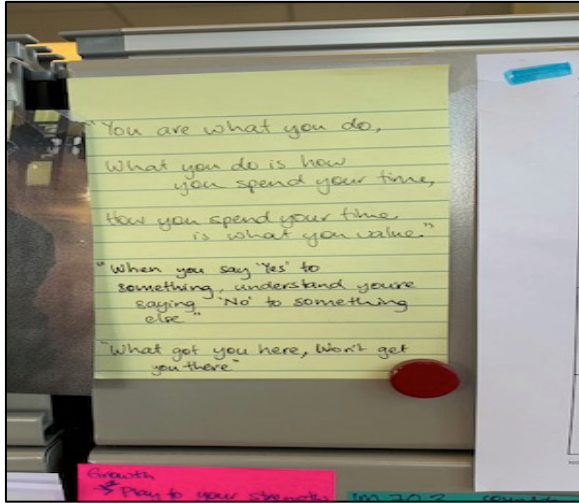 "You are what you do,
What you do is how
you spend your time,
How you spend your time
is what you value."
"When you say 'Yes' to
something, understand you're
saying 'No' to something
else"
"What got you here, Won't get
you there"
Growth
Play to your strength